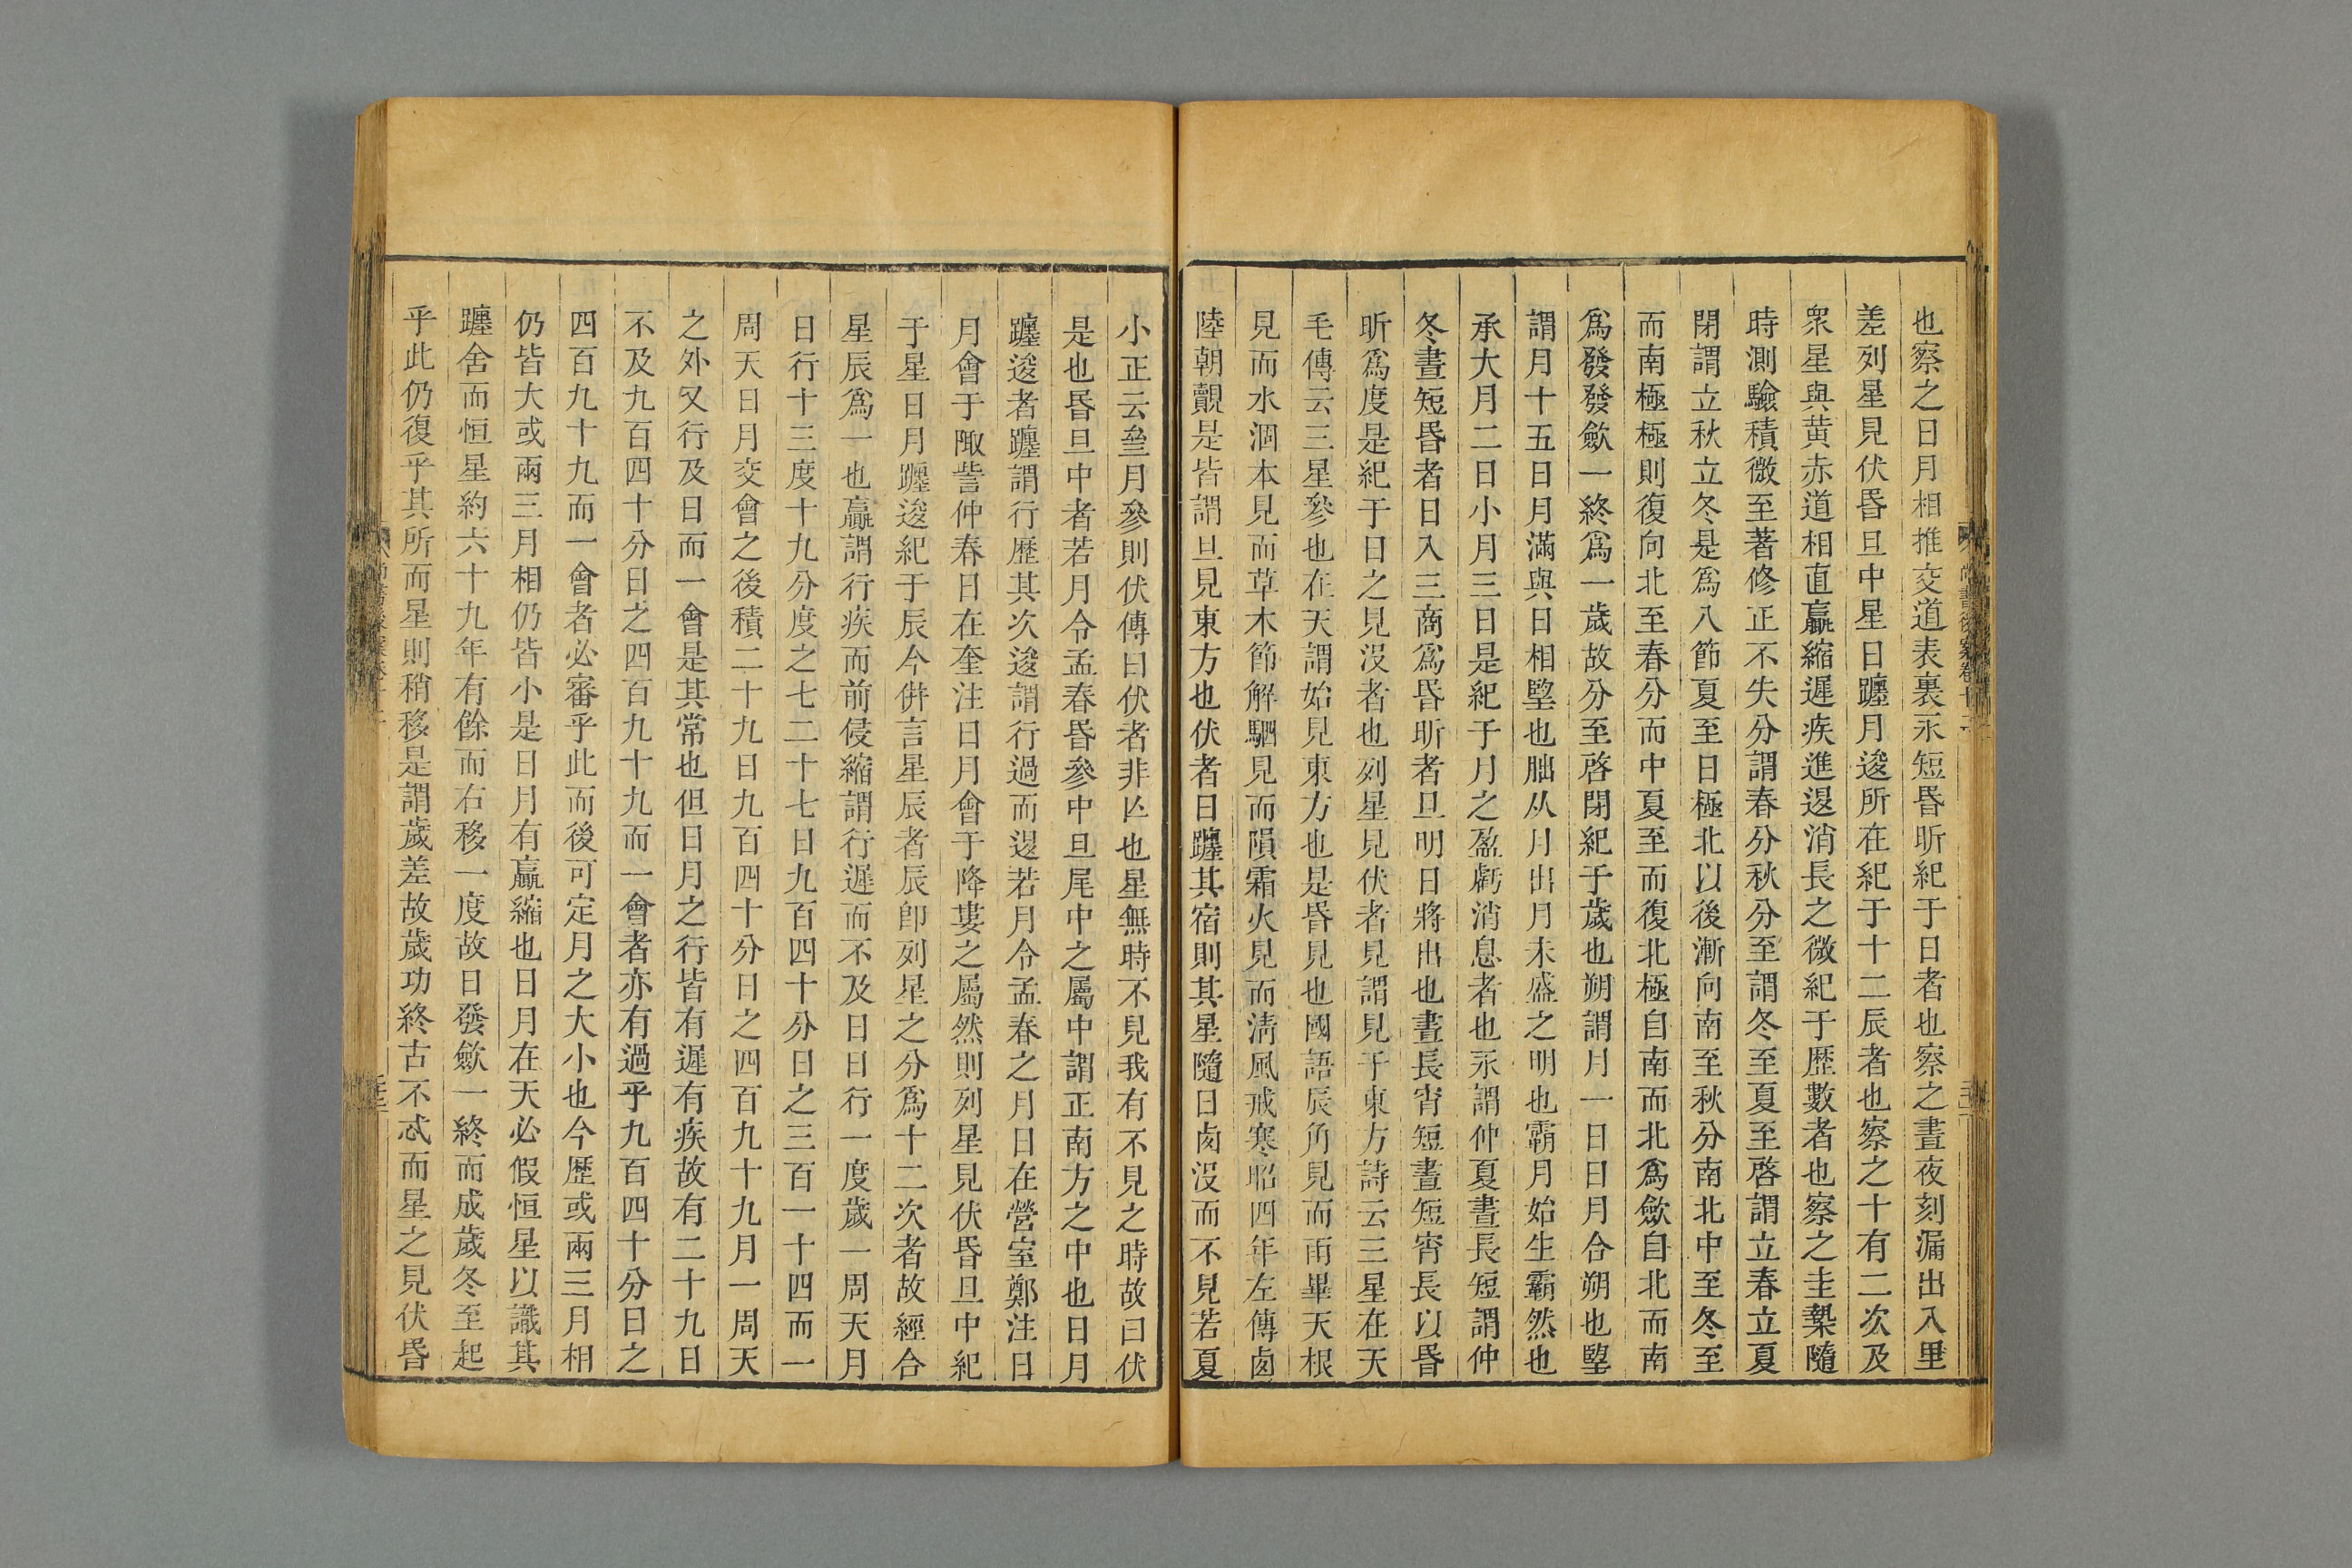 也察之日月相推交道表裏永短昬昕紀于日者也察之晝夜刻漏出入里
差列星見伏昬旦中星日躔月逡所在紀于十二辰者也察之十有二次及
衆星與黄赤道相直贏縮遲疾進退消長之微紀于歷數者也察之圭槷隨
時測驗積微至著修正不失分謂春分秋分至謂冬至夏至啓謂立春立夏
閉謂立秋立冬是爲八節夏至日極北以後漸向南至秋分南北中至冬至
而南極極則復向北至春分而中夏至而復北極自南而北爲歛自北而南
爲發發歛一終爲一歲故分至啓閉紀于歲也朔謂月一日日月合朔也朢
謂月十五日月滿與日相朢也朏从月出月未盛之明也霸月始生霸然也
承大月二日小月三日是紀于月之盈虧消息者也永謂仲夏晝長短謂仲
冬晝短昬者日入三商爲昬昕者旦明日將出也晝長宵短晝短宵長以昬
昕爲度是紀于日之見沒者也列星見伏者見謂見于東方詩云三星在天
毛傳云三星參也在天謂始見東方也是昬見也國語辰角見而雨畢天根
見而水涸本見而草木節解駟見而隕霜火見而淸風戒寒昭四年左傳鹵
陸朝覿是皆謂旦見東方也伏者日躔其宿則其星隨日鹵沒而不見若夏
小正云三月參則伏傳曰伏者非亾也星無時不見我有不見之時故曰伏
是也昬旦中者若月令孟春昬參中旦尾中之屬中謂正南方之中也日月
躔逡者躔謂行歷其次逡謂行過而退若月令孟春之月日在營室鄭注日
月會于陬訾仲春日在奎注日月會于降婁之屬然則列星見伏昬旦中紀
于星日月躔逡紀于辰今倂言星辰者辰卽列星之分爲十二次者故經合
星辰爲一也贏謂行疾而前侵縮謂行遲而不及日日行一度歲一周天月
日行十三度十九分度之七二十七日九百四十分日之三百一十四而一
周天日月交會之後積二十九日九百四十分日之四百九十九月一周天
之外又行及日而一會是其常也但日月之行皆有遲有疾故有二十九日
不及九百四十分日之四百九十九而一會者亦有過乎九百四十分日之
四百九十九而一會者必審乎此而後可定月之大小也今歷或兩三月相
仍皆大或兩三月相仍皆小是日月有贏縮也日月在天必假恒星以識其
躔舍而恒星約六十九年有餘而右移一度故日發歛一終而成歲冬至起
乎此仍復乎其所而星則稍移是謂歲差故歲功終古不忒而星之見伏昬